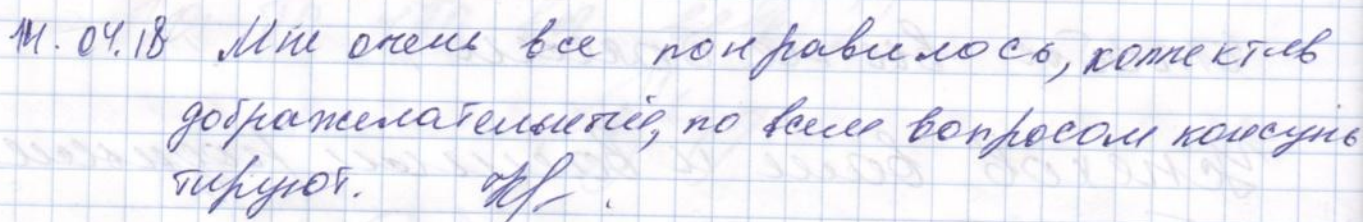 14.04.18 Мне очень все понравилось, коллектив
доброжелательный, по всем вопросам консуль
тируют.